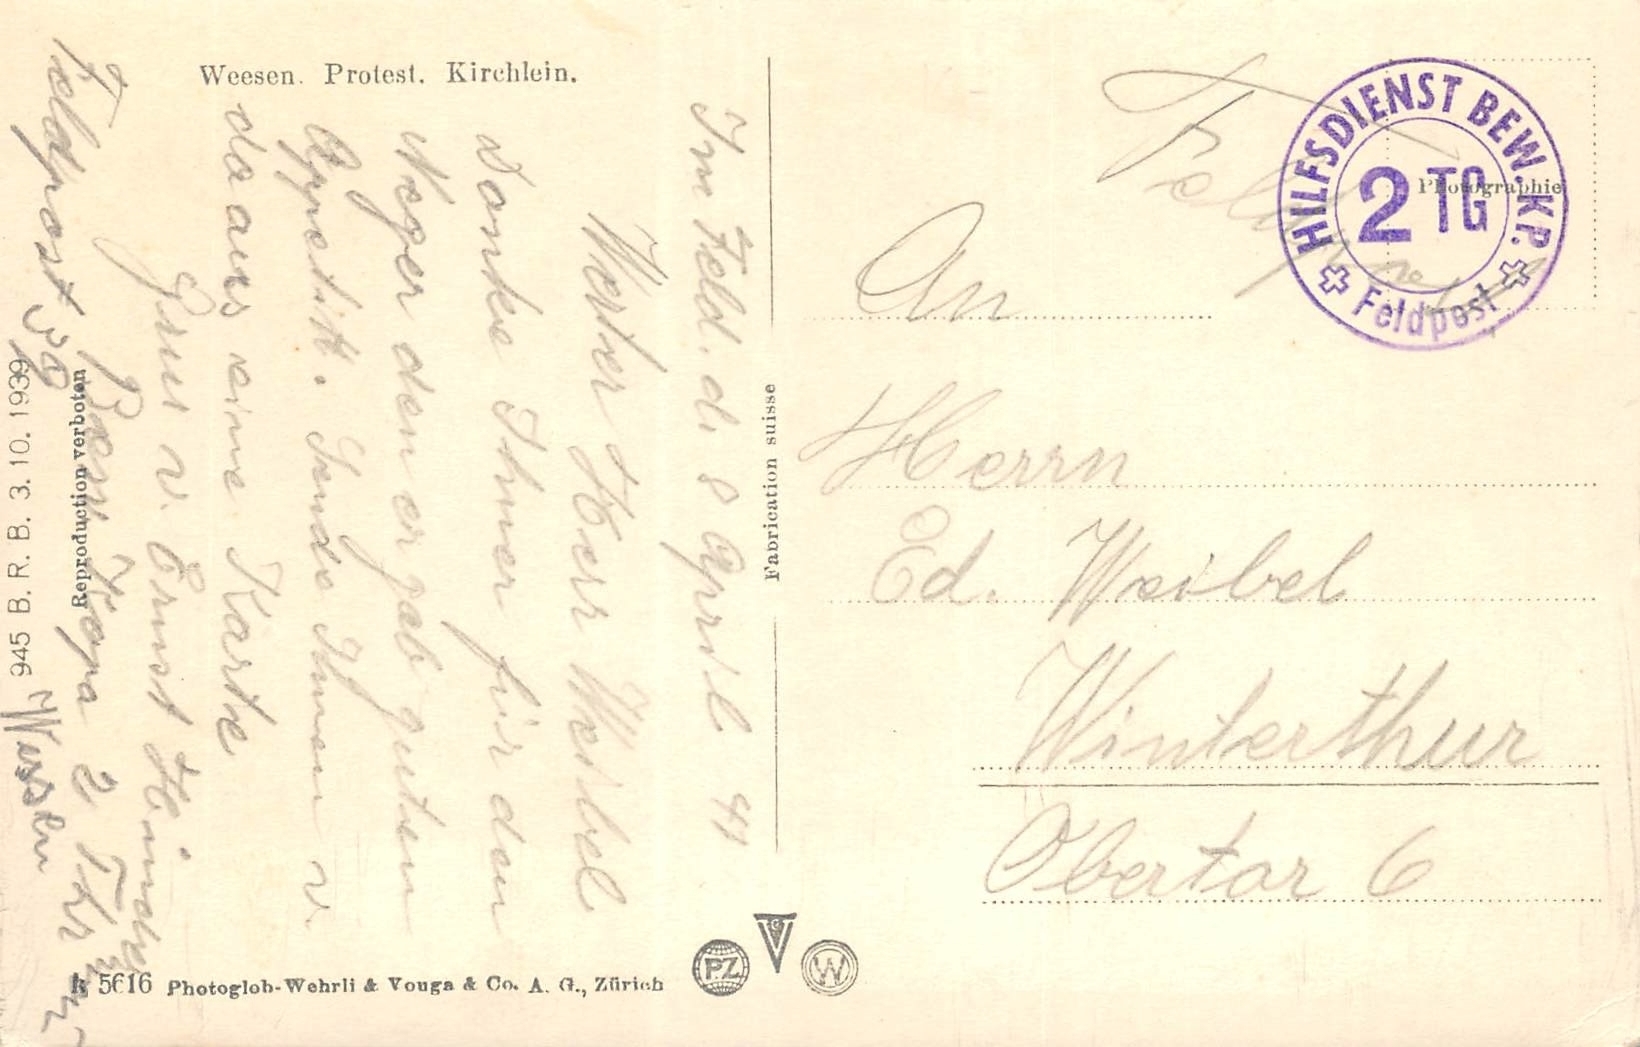 Weesen. Protest. Kirchlein.
Im Feld. d. 8 April 41
Werter Herr Weibel
Danke Ihnen für den
Neger denn er gab guten
Appetitt. Sende Ihnen v.
da aus eine Karte
Grus v. Ernst
Bew. Kopa 2 TG
Feldpost 39
Weesen
945 B. R. B. 3. 10. 1939
Reproduction verboten
R 5616 Photoglob-Wehrli & Vouga & Co. A. G., Zürich
PZ
V
G
W
Fabrication suisse
Feldpost
Photographie
HILFSDIENST BEW. KP.
2 TG
Feldpost
An
Herrn
Ed. Weibel
Winterthur
Obertor 6